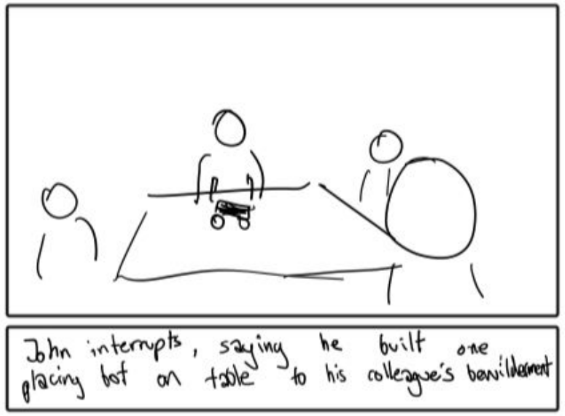 John interrupts, saying he built one
placing bot on table to his colleague's bewilderment